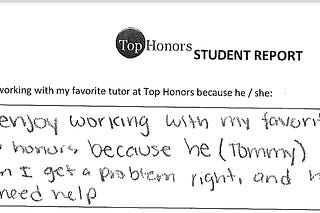 Top Honors
STUDENT REPORT
working with my favorite tutor at Top Honors because he / she:
enjoy working with my favorit
honors because he (Tommy)
I get a problem right, and h
need help